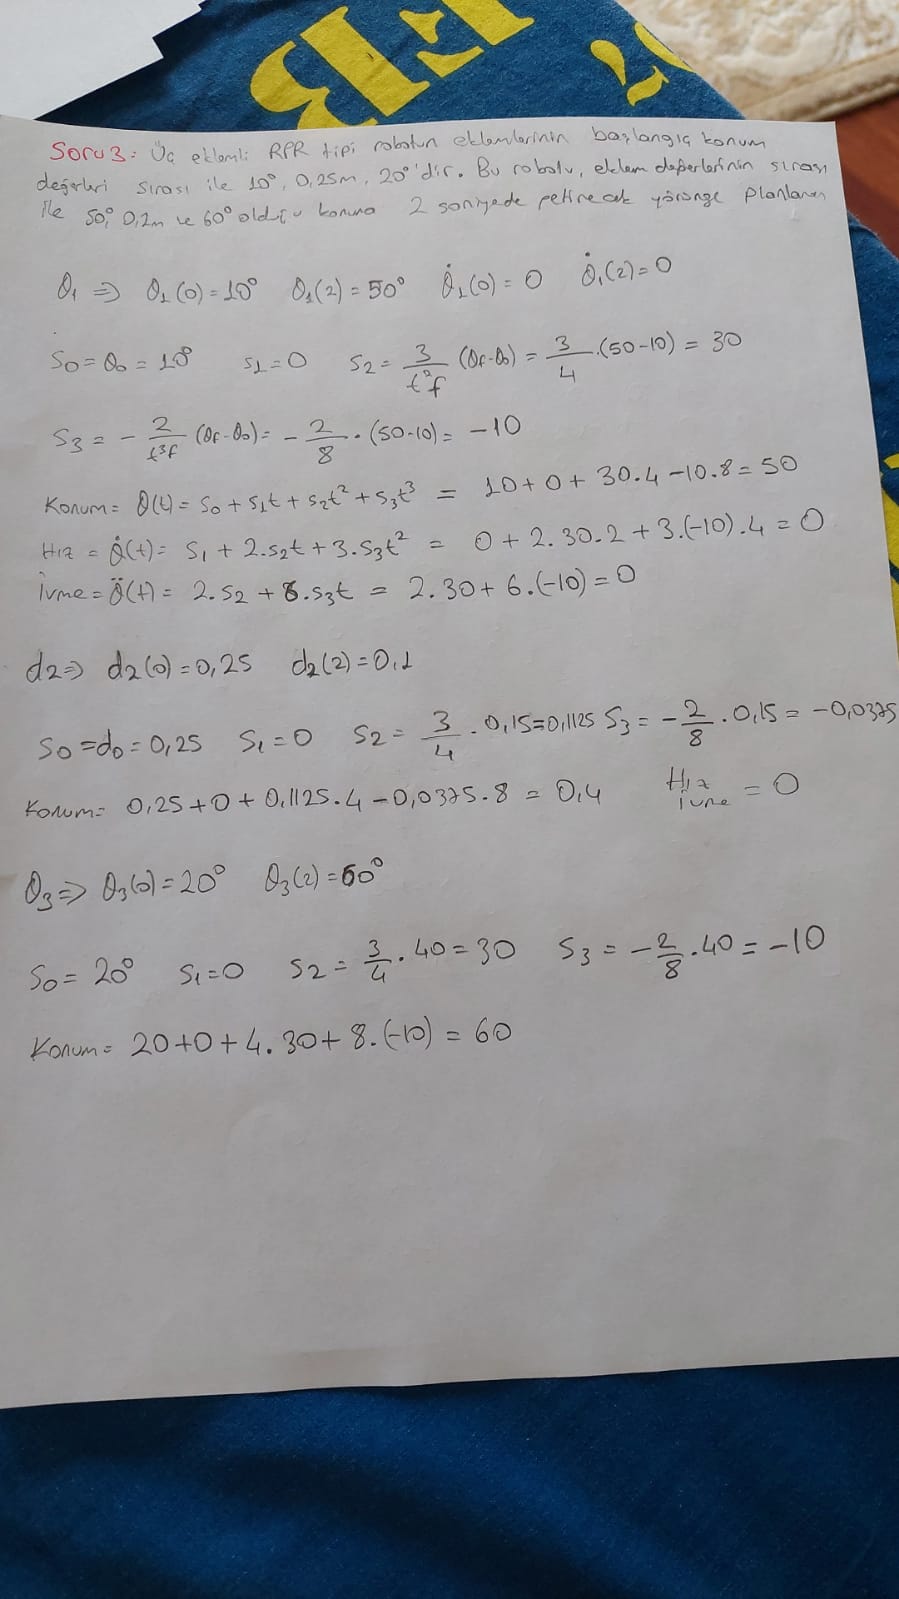 Soru 3: Üç eklemli RPR tipi robotun eklemlerinin başlangıç konum
değerleri sırası ile 10°, 0,25m, 20°'dir. Bu robotu, eklem değerlerinin sırası
ile 50°, 0,2m ve 60° olduğu konuma 2 saniyede getirecek yörünge planlanın
θ₁ ⇒ θ₁(0) = 10° θ₁(2) = 50° θ̇₁(0) = 0 θ̇₁(2) = 0
S0 = θ0 = 10° S1 = 0 S2 = 3/t²f (θf-θ0) = 3/4 .(50-10) = 30
S3 = - 2/t³f (θf-θ0) = - 2/8 . (50-10) = -10
Konum = θ(t) = S0 + S1t + S2t² + S3t³ = 10+0+30.4-10.8 = 50
Hız = θ̇(t) = S1 + 2.S2t + 3.S3t² = 0+2.30.2+3.(-10).4 = 0
İvme = θ̈(t) = 2.S2 + 6.S3t = 2.30+6.(-10) = 0
d2 ⇒ d2(0) = 0,25 d2(2) = 0,1
S0 = d0 = 0,25 S1 = 0 S2 = 3/4 . 0,15 = 0,1125 S3 = - 2/8 . 0,15 = -0,0375
Konum = 0,25+0+0,1125.4-0,0375.8 = 0,4 Hız İvme = 0
θ3 ⇒ θ3(0) = 20° θ3(2) = 60°
S0 = 20° S1 = 0 S2 = 3/4 . 40 = 30 S3 = - 2/8 .40 = -10
Konum = 20+0+4.30+8.(-10) = 60